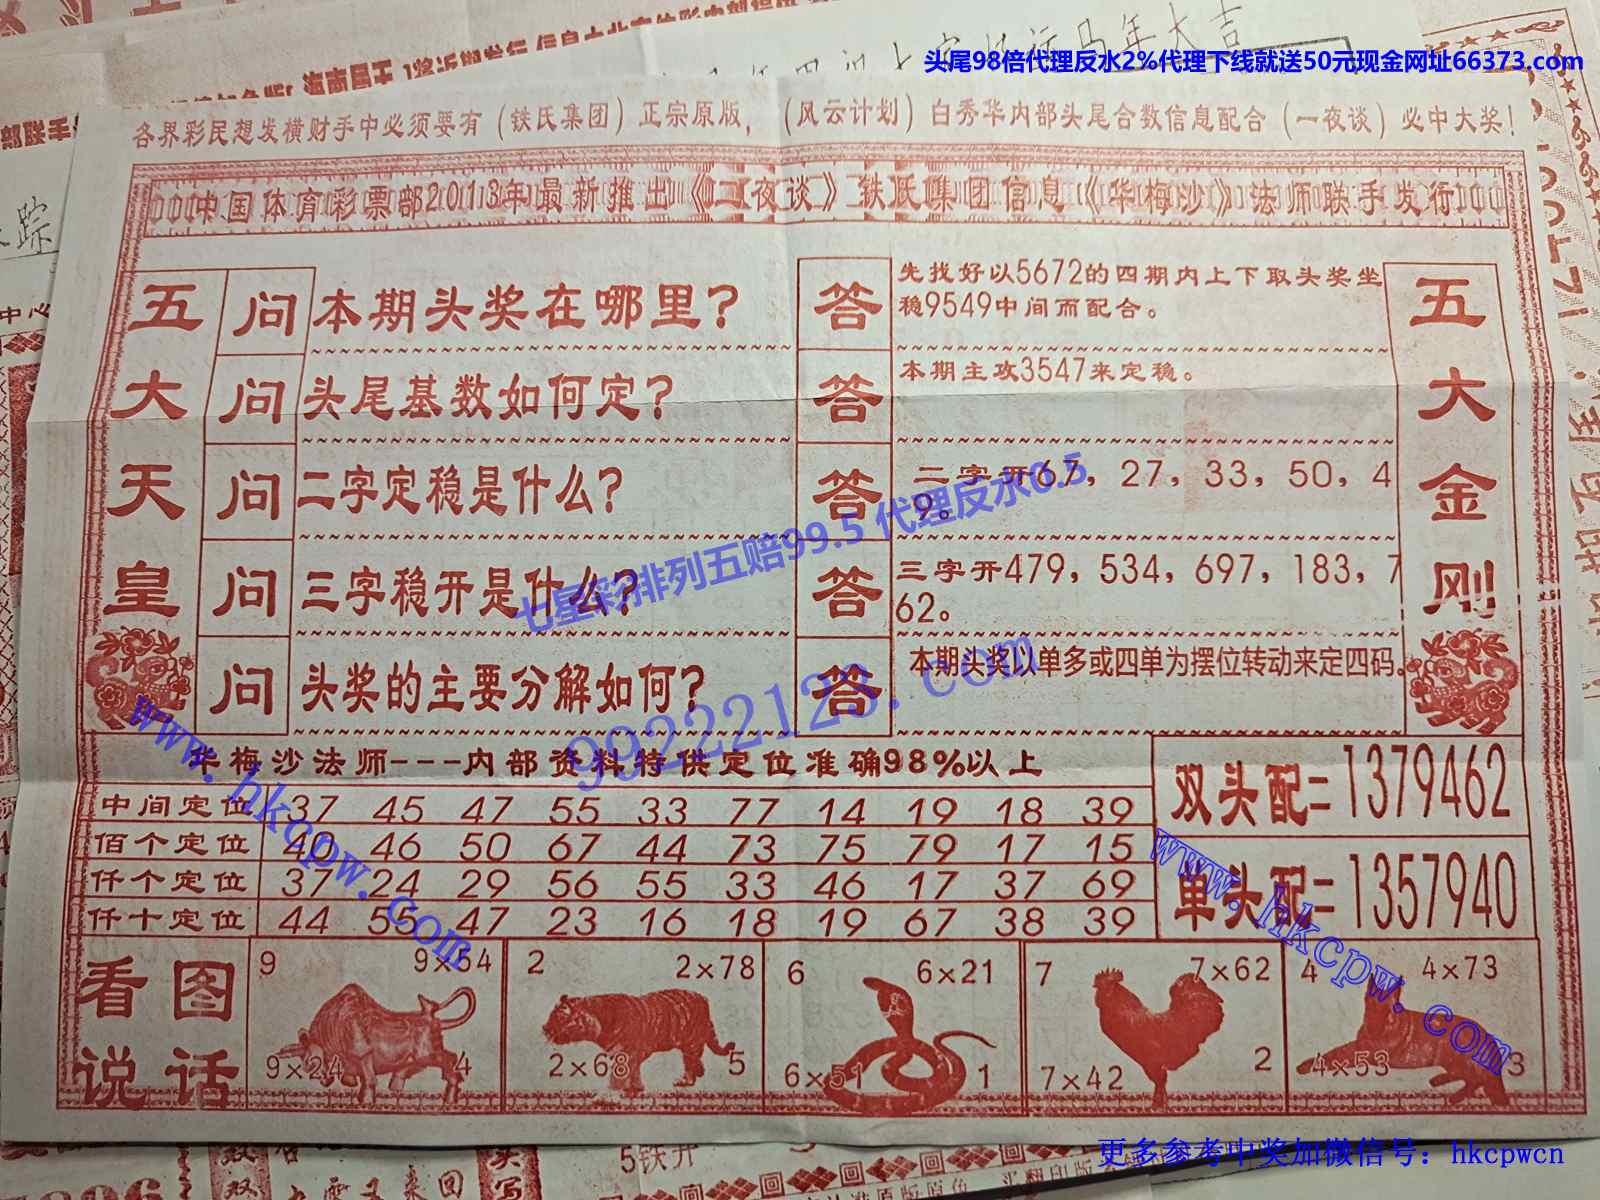 头尾98倍代理反水2%代理下线就送50元现金网址66373.com
各界彩民想发横财手中必须要有(铁氏集团)正宗原版,(风云计划)白秀华内部头尾合数信息配合(一夜谈)必中大奖!
中国体育彩票部2013年最新推出《一夜谈》铁氏集团信息《华梅沙》法师联手发行
五大天皇
问 本期头奖在哪里?
答 先找好以5672的四期内上下取头奖坐
稳9549中间而配合。
问 头尾基数如何定?
答 本期主攻3547来定稳。
问 二字定稳是什么?
答 二字开67,27,33,50,4
9。
问 三字稳开是什么?
答 三字开479,534,697,183,7
62。
问 头奖的主要分解如何?
答 本期头奖以单多或四单为摆位转动来定四码。
五大金刚
七星彩排列五赔99.5 代理反水0.5
99222123.com
www.hkcpw.com
www.hkcpw.com
华梅沙法师---内部资料特供定位准确98%以上
中间定位 37 45 47 55 33 77 14 19 18 39
佰个定位 40 46 50 67 44 73 75 79 17 15
仟个定位 37 24 29 56 55 33 46 17 37 69
仟十定位 44 55 47 23 16 18 19 67 38 39
双头配=1379462
单头配=1357940
看图
说话
9 9×54
9×24 4
2 2×78
2×68 5
6 6×21
6×51 1
7 7×62
7×42 2
4 4×73
4×53 3
更多参考中奖加微信号:hkcpwcn
5铁开